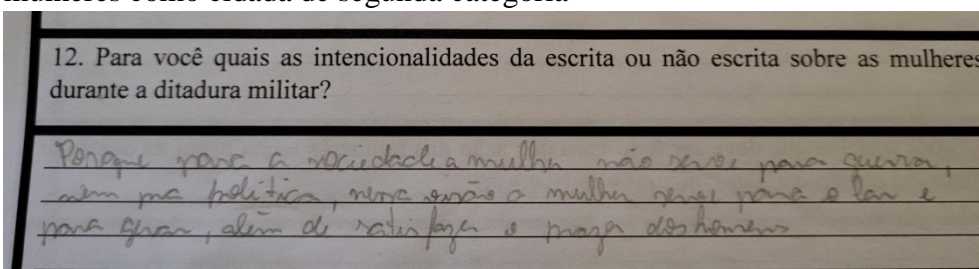 12. Para você quais as intencionalidades da escrita ou não escrita sobre as mulheres
durante a ditadura militar?
Porque para a sociedade a mulher não serve para guerra,
nem pra política, visão a mulher serve para o lar e
para gerar, além de satisfazer o prazer dos homens